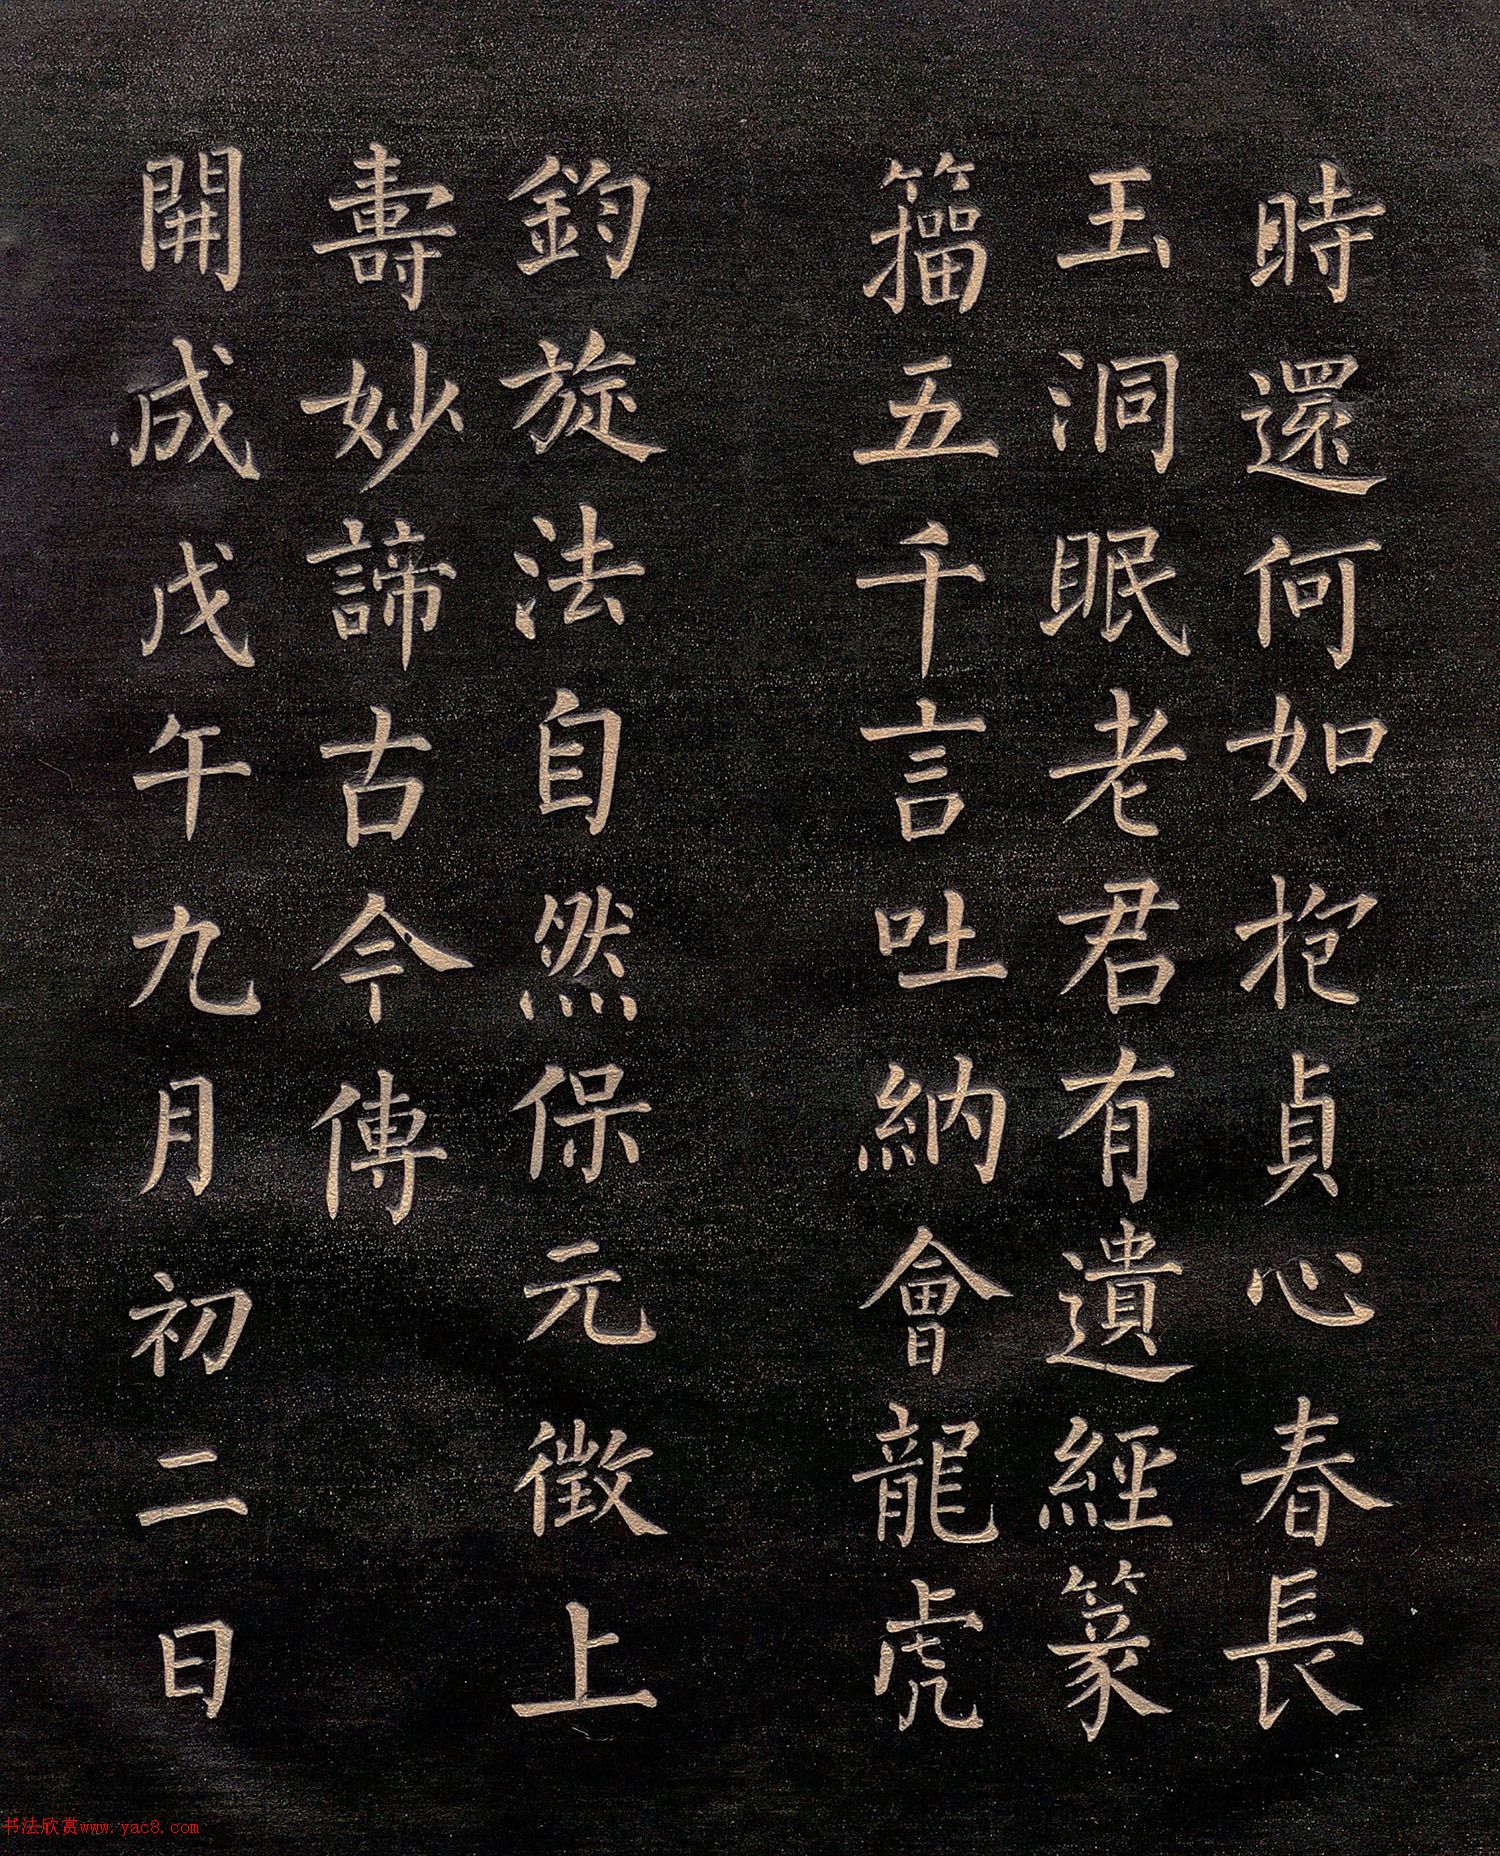 時還何如抱貞心春長
玉洞眠老君有遺經篆
籀五千言吐納會龍虎
鈞旋法自然保元徵上
壽妙諦古今傳
開成戊午九月初二日
书法欣赏www.yac8.com